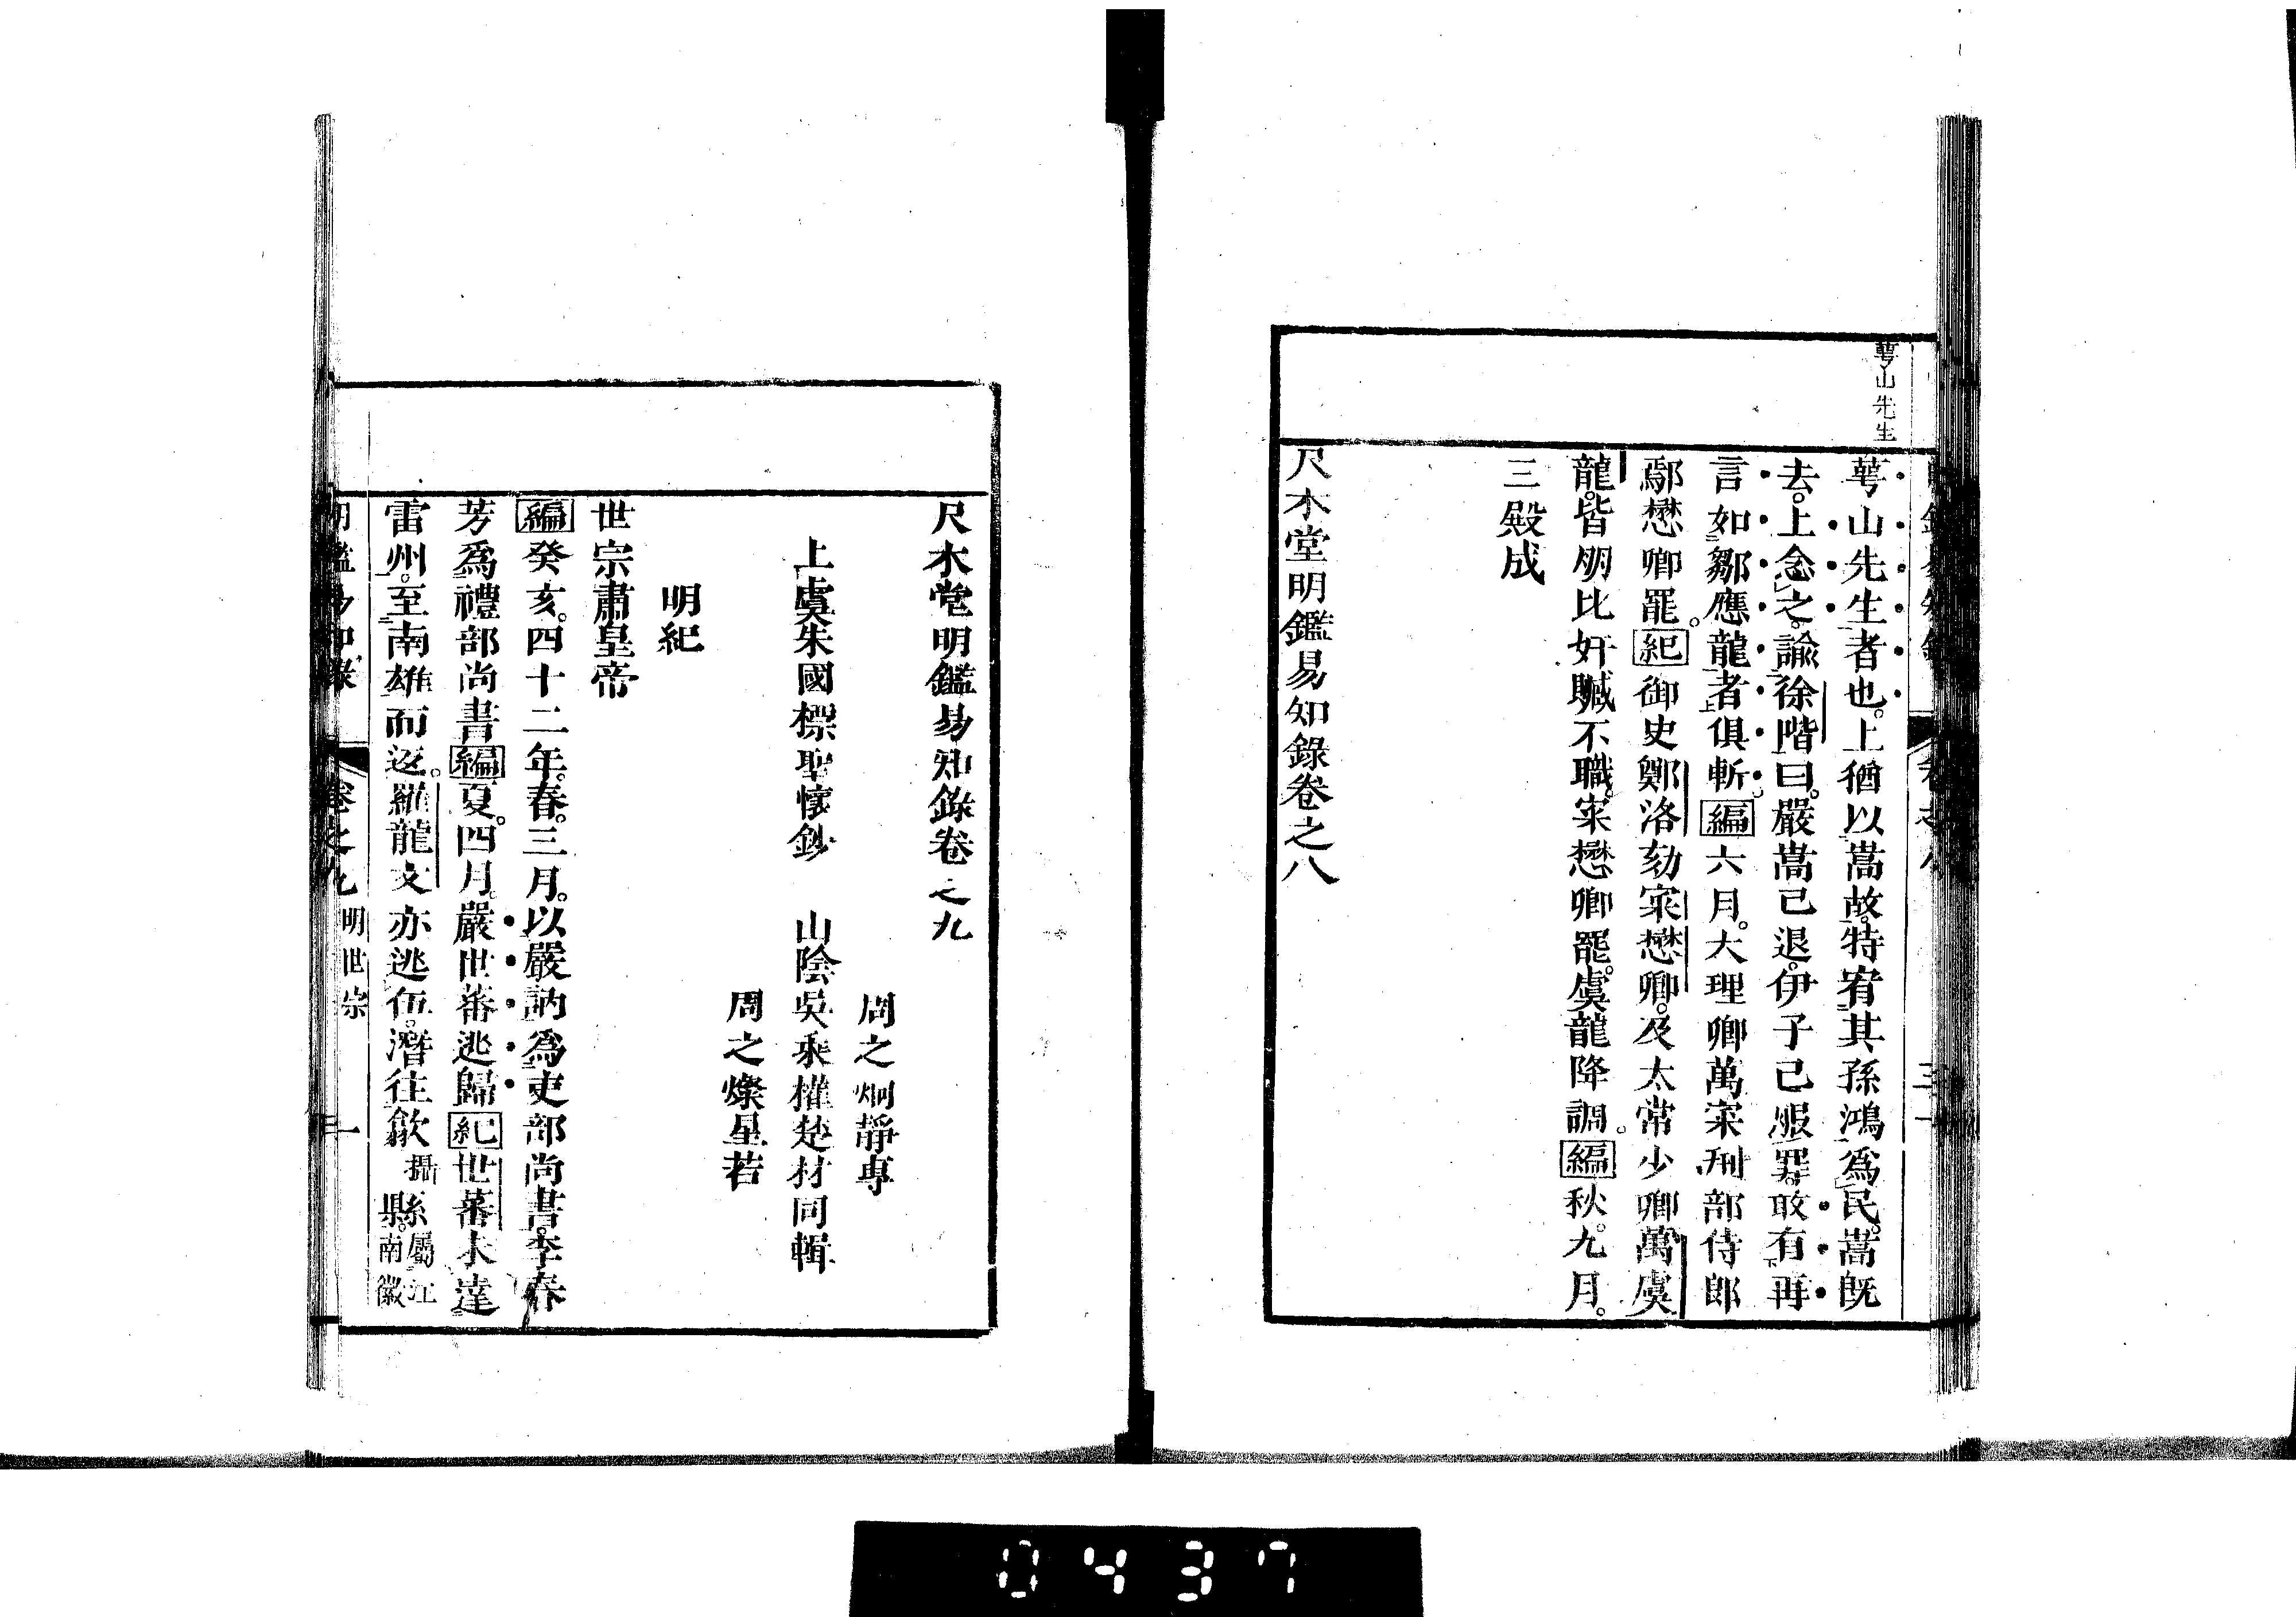 萼山先生
萼山先生者也上猶以嵩故特宥其孫鴻爲民嵩旣
去上念之諭徐階曰嚴嵩已退伊子已服罪敢有再
言如鄒應龍者俱斬編六月大理卿萬寀刑部侍郎
鄢懋卿罷紀御史鄭洛劾寀懋卿及太常少卿萬虞
龍皆朋比奸贓不職寀懋卿罷虞龍降調編秋九月
三殿成
尺木堂明鑑易知錄卷之八
尺木堂明鑑易知錄卷之九
周之炯靜專
上虞朱國標聖懷鈔 山陰吳乘權楚材同輯
周之燦星若
明紀
世宗肅皇帝
編癸亥四十二年春三月以嚴訥爲吏部尚書李春
芳爲禮部尚書編夏四月嚴世蕃逃歸紀世蕃未達
雷州至南雄而返羅龍文亦逃伍潛往歙
攝縣屬江
縣南徽
卷之九 明世宗 一
0437